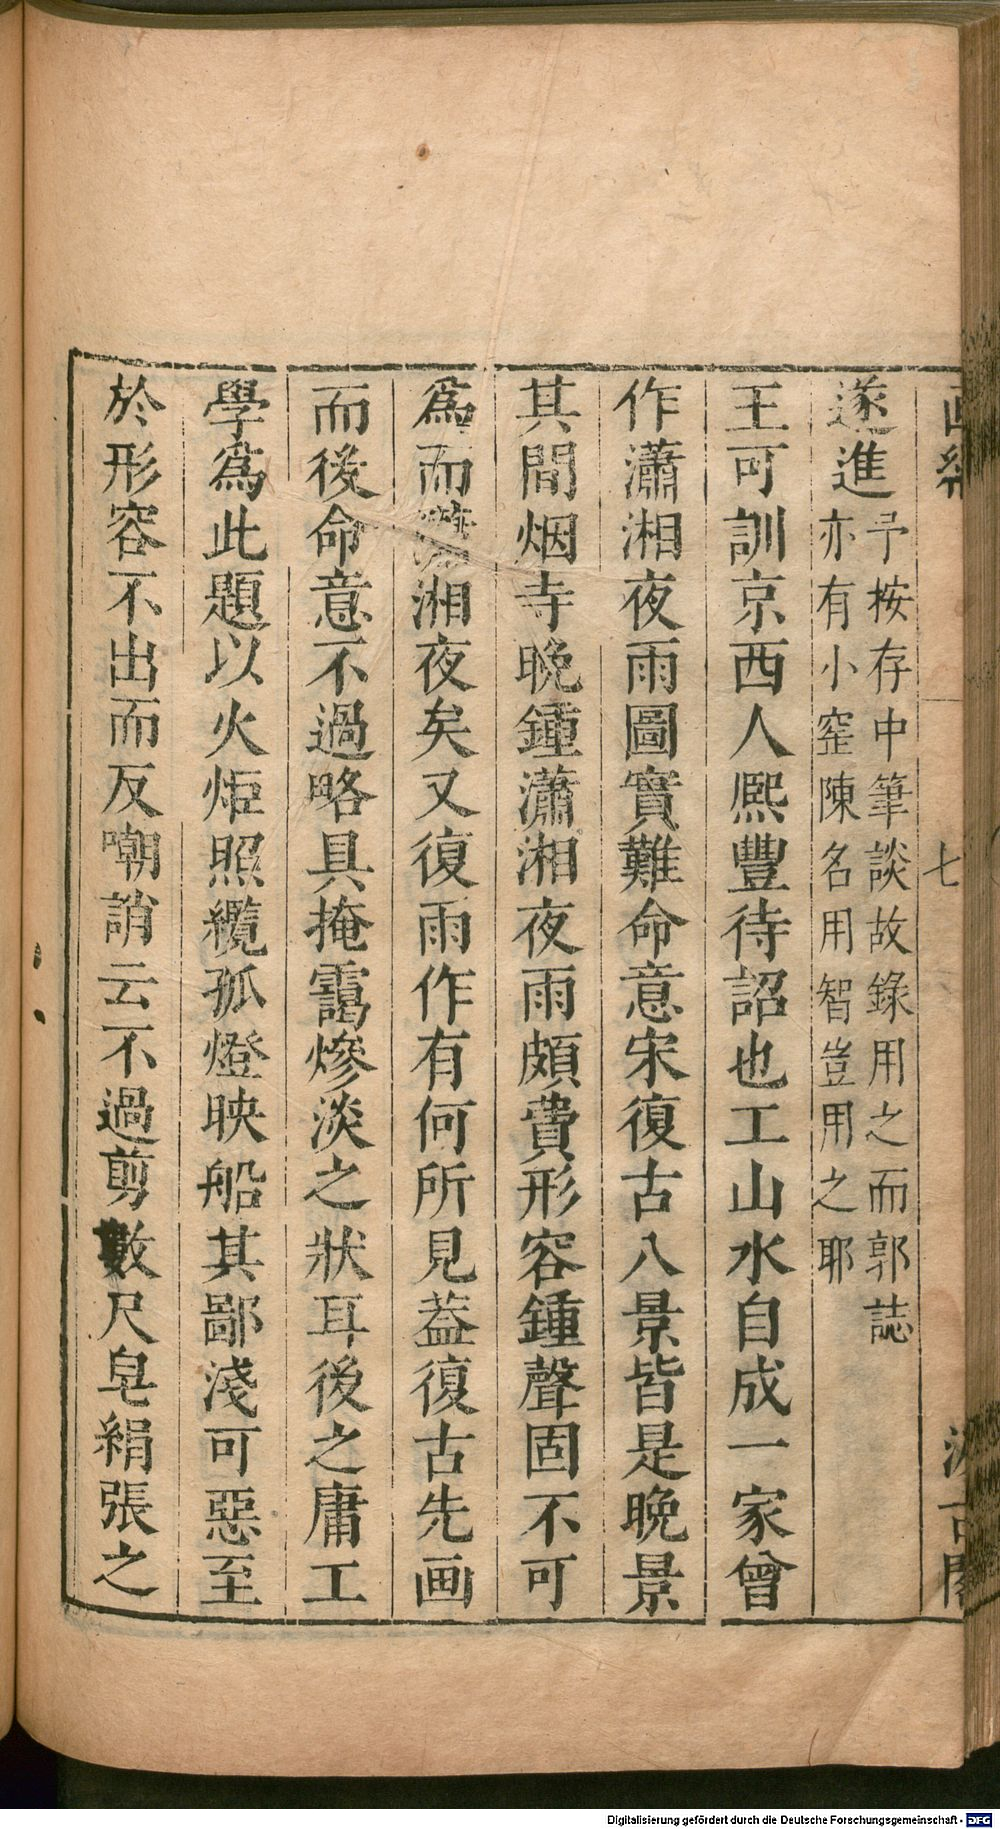 七
遂進
予按存中筆談故錄用之而郭誌
亦有小窐陳名用智豈用之耶
王可訓京西人熈豐待詔也工山水自成一家曾
作瀟湘夜雨圖實難命意宋復古八景皆是晚景
其間烟寺晚鍾瀟湘夜雨頗費形容鍾聲固不可
爲而瀟湘夜矣又復雨作有何所見葢復古先画
而後命意不過略具掩靄慘淡之狀耳後之庸工
學爲此題以火炬照纜孤燈映船其鄙淺可惡至
於形容不出而反嘲誚云不過剪數尺皂絹張之
Digitalisierung gefördert durch die Deutsche Forschungsgemeinschaft - DFG